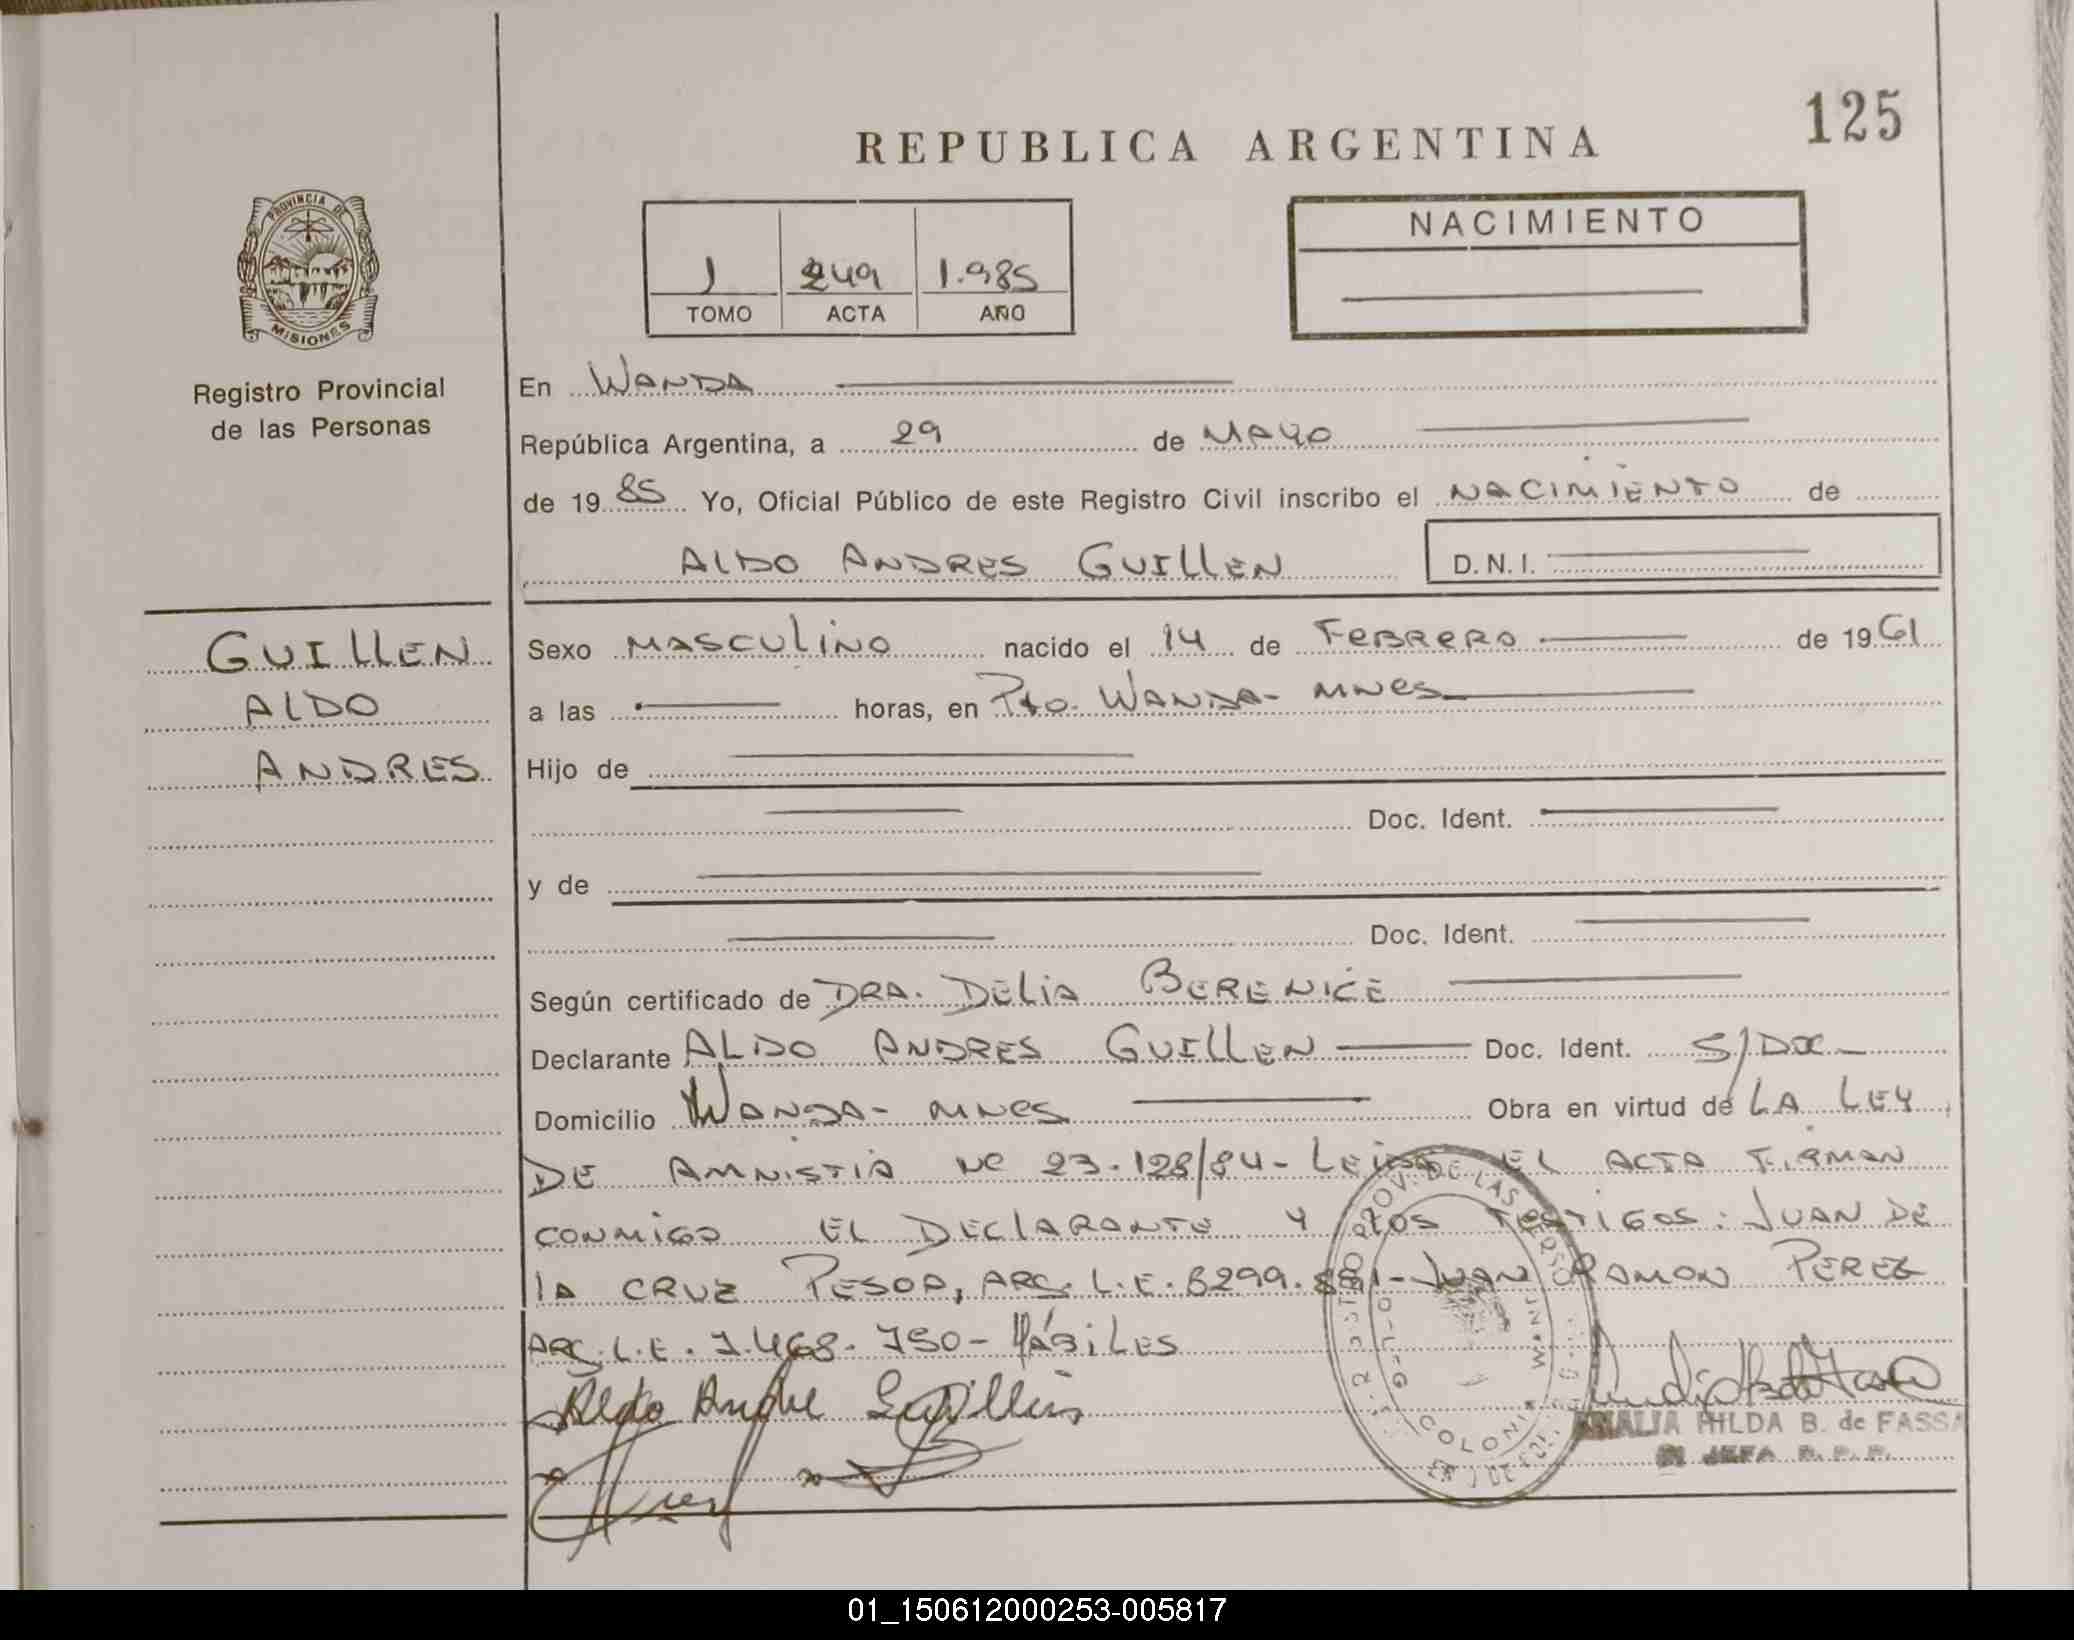 125
REPUBLICA ARGENTINA
PROVINCIA DE
MISIONES
Registro Provincial
de las Personas
1 249 1.985
TOMO ACTA AÑO
NACIMIENTO
En WANDA
República Argentina, a 29 de MAYO
de 19 85 Yo, Oficial Público de este Registro Civil inscribo el NACIMIENTO de
ALDO ANDRES GUILLEN D.N.I.
GUILLEN
ALDO
ANDRES
Sexo MASCULINO nacido el 14 de FEBRERO de 19 61
a las horas, en Pto. WANDA- MNES
Hijo de
Doc. Ident.
y de
Doc. Ident.
Según certificado de DRA. DELIA BERENICE
Declarante ALDO ANDRES GUILLEN Doc. Ident. S/DOC
Domicilio WANDA- MNES Obra en virtud de LA LEY
DE AMNISTIA Nº 23.128/84- LEIDA EL ACTA FIRMAN
CONMIGO EL DECLARANTE Y LOS TESTIGOS: JUAN DE
LA CRUZ PESOA, ARG. L.E. 8299. JUAN RAMON PEREZ
ARG. L.E. 7.468.750- HÁBILES
Aldo Andre Guillen
PROV. DE LAS
COLONIA WANDA
ANALIA HILDA B. de FASSA
JEFA R.P.P.
01_150612000253-005817